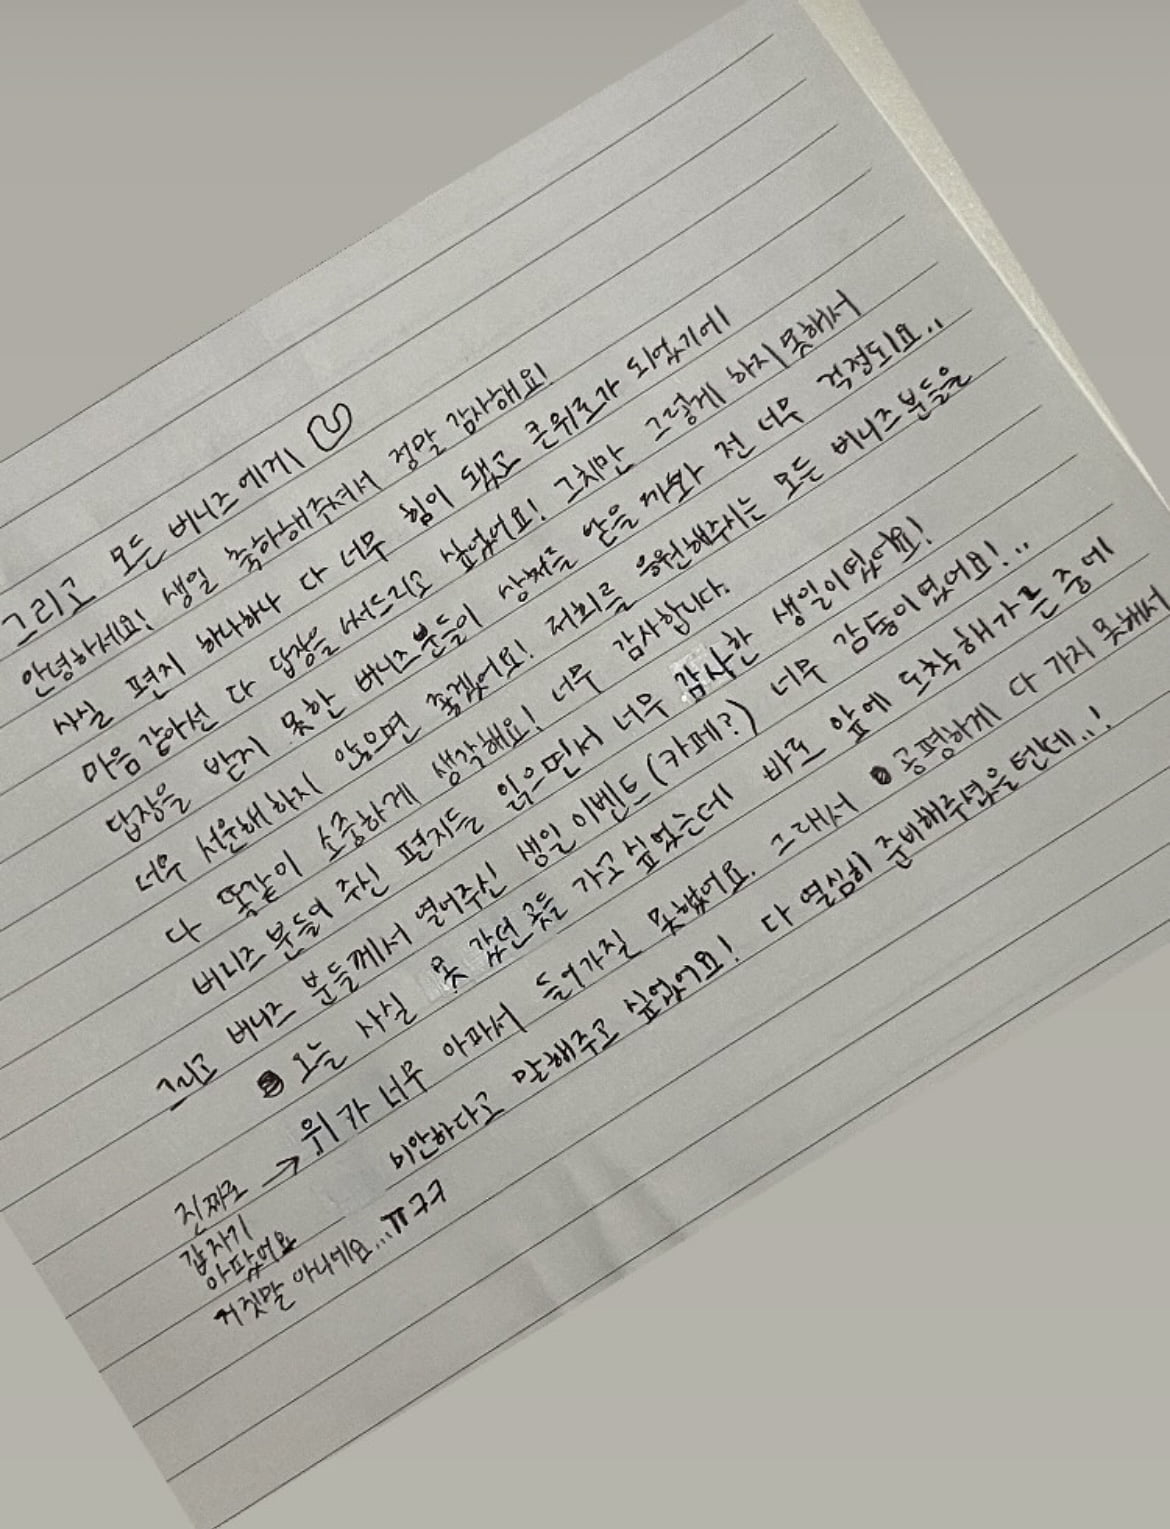 그리고 모든 버니즈에게
안녕하세요! 생일 축하해주셔서 정말 감사해요!
사실 편지 하나하나 다 너무 힘이 됐고 큰위로가 되었기에
마음 같아선 다 답장을 써드리고 싶었어요! 그치만 그렇게 하지 못해서
답장을 받지 못한 버니즈분들이 상처를 받을까봐 전 너무 걱정되요..
너무 서운해 하지 않으면 좋겠어요! 저희를 응원해주시는 모든 버니즈분들을
다 똑같이 소중하게 생각해요! 너무 감사합니다.
버니즈 분들이 주신 편지들 읽으면서 너무 감사한 생일이였어요!
그리고 버니즈 분들께서 열어주신 생일 이벤트(카페?) 너무 감동이였어요!..
오늘 사실 못 갔던 곳들 가고싶었는데 바로 앞에 도착해가는 중에
위가 너무 아파서 들어가질 못했어요. 그래서 공평하게 다 가지 못해서
미안하다고 말해주고 싶었어요! 다 열심히 준비해주셨을텐데..!
진짜로 →
갑자기
아팠어요
거짓말 아니예요...ㅠㅋㅋ